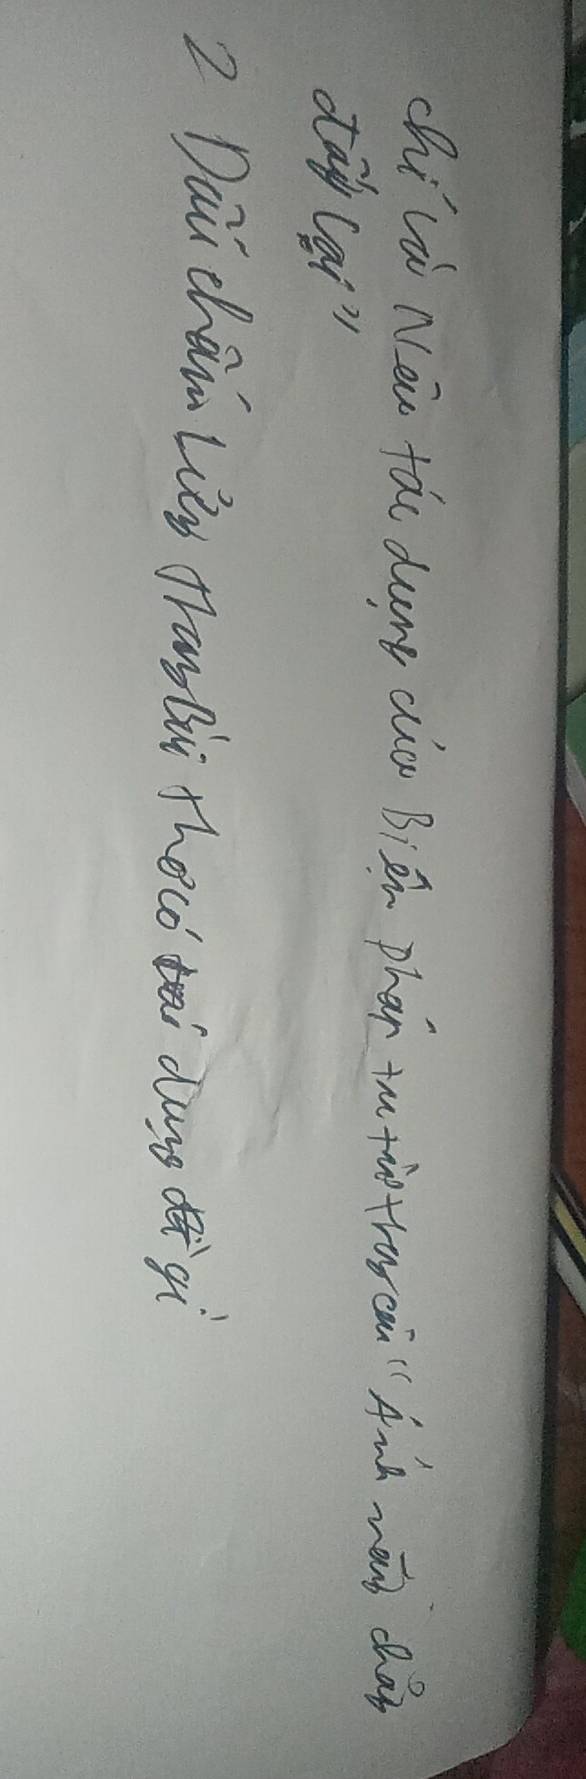 chỉ là Nêu tác dụng của Biện pháp tu từ trong câu "Ánh nắng chảy
đầy lại"
2 Dấu chấm lửng trong bài thơ có tác dụng gì